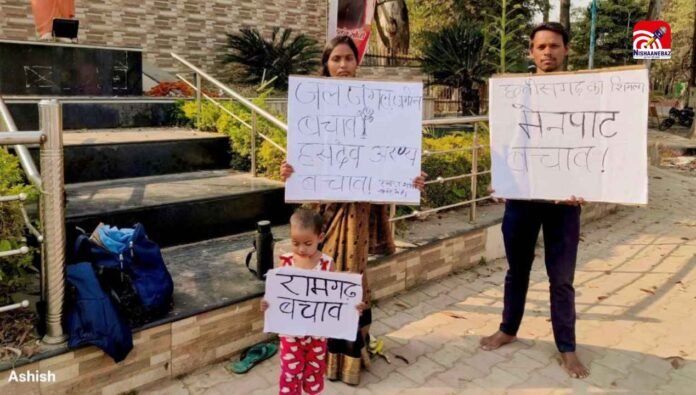 NISHAANEBAZ
जल जंगल जमीन
बचाव!
हसदेव अरण्य
बचाव!
छत्तीसगढ़ का शिमला
मैनपाट
बचाव!
रामगढ़
बचाव
Ashish